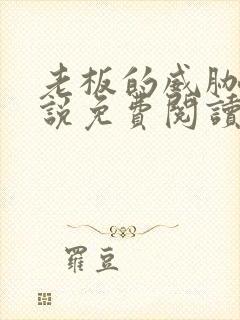 老板的威胁
說免費閱讀
羅豆